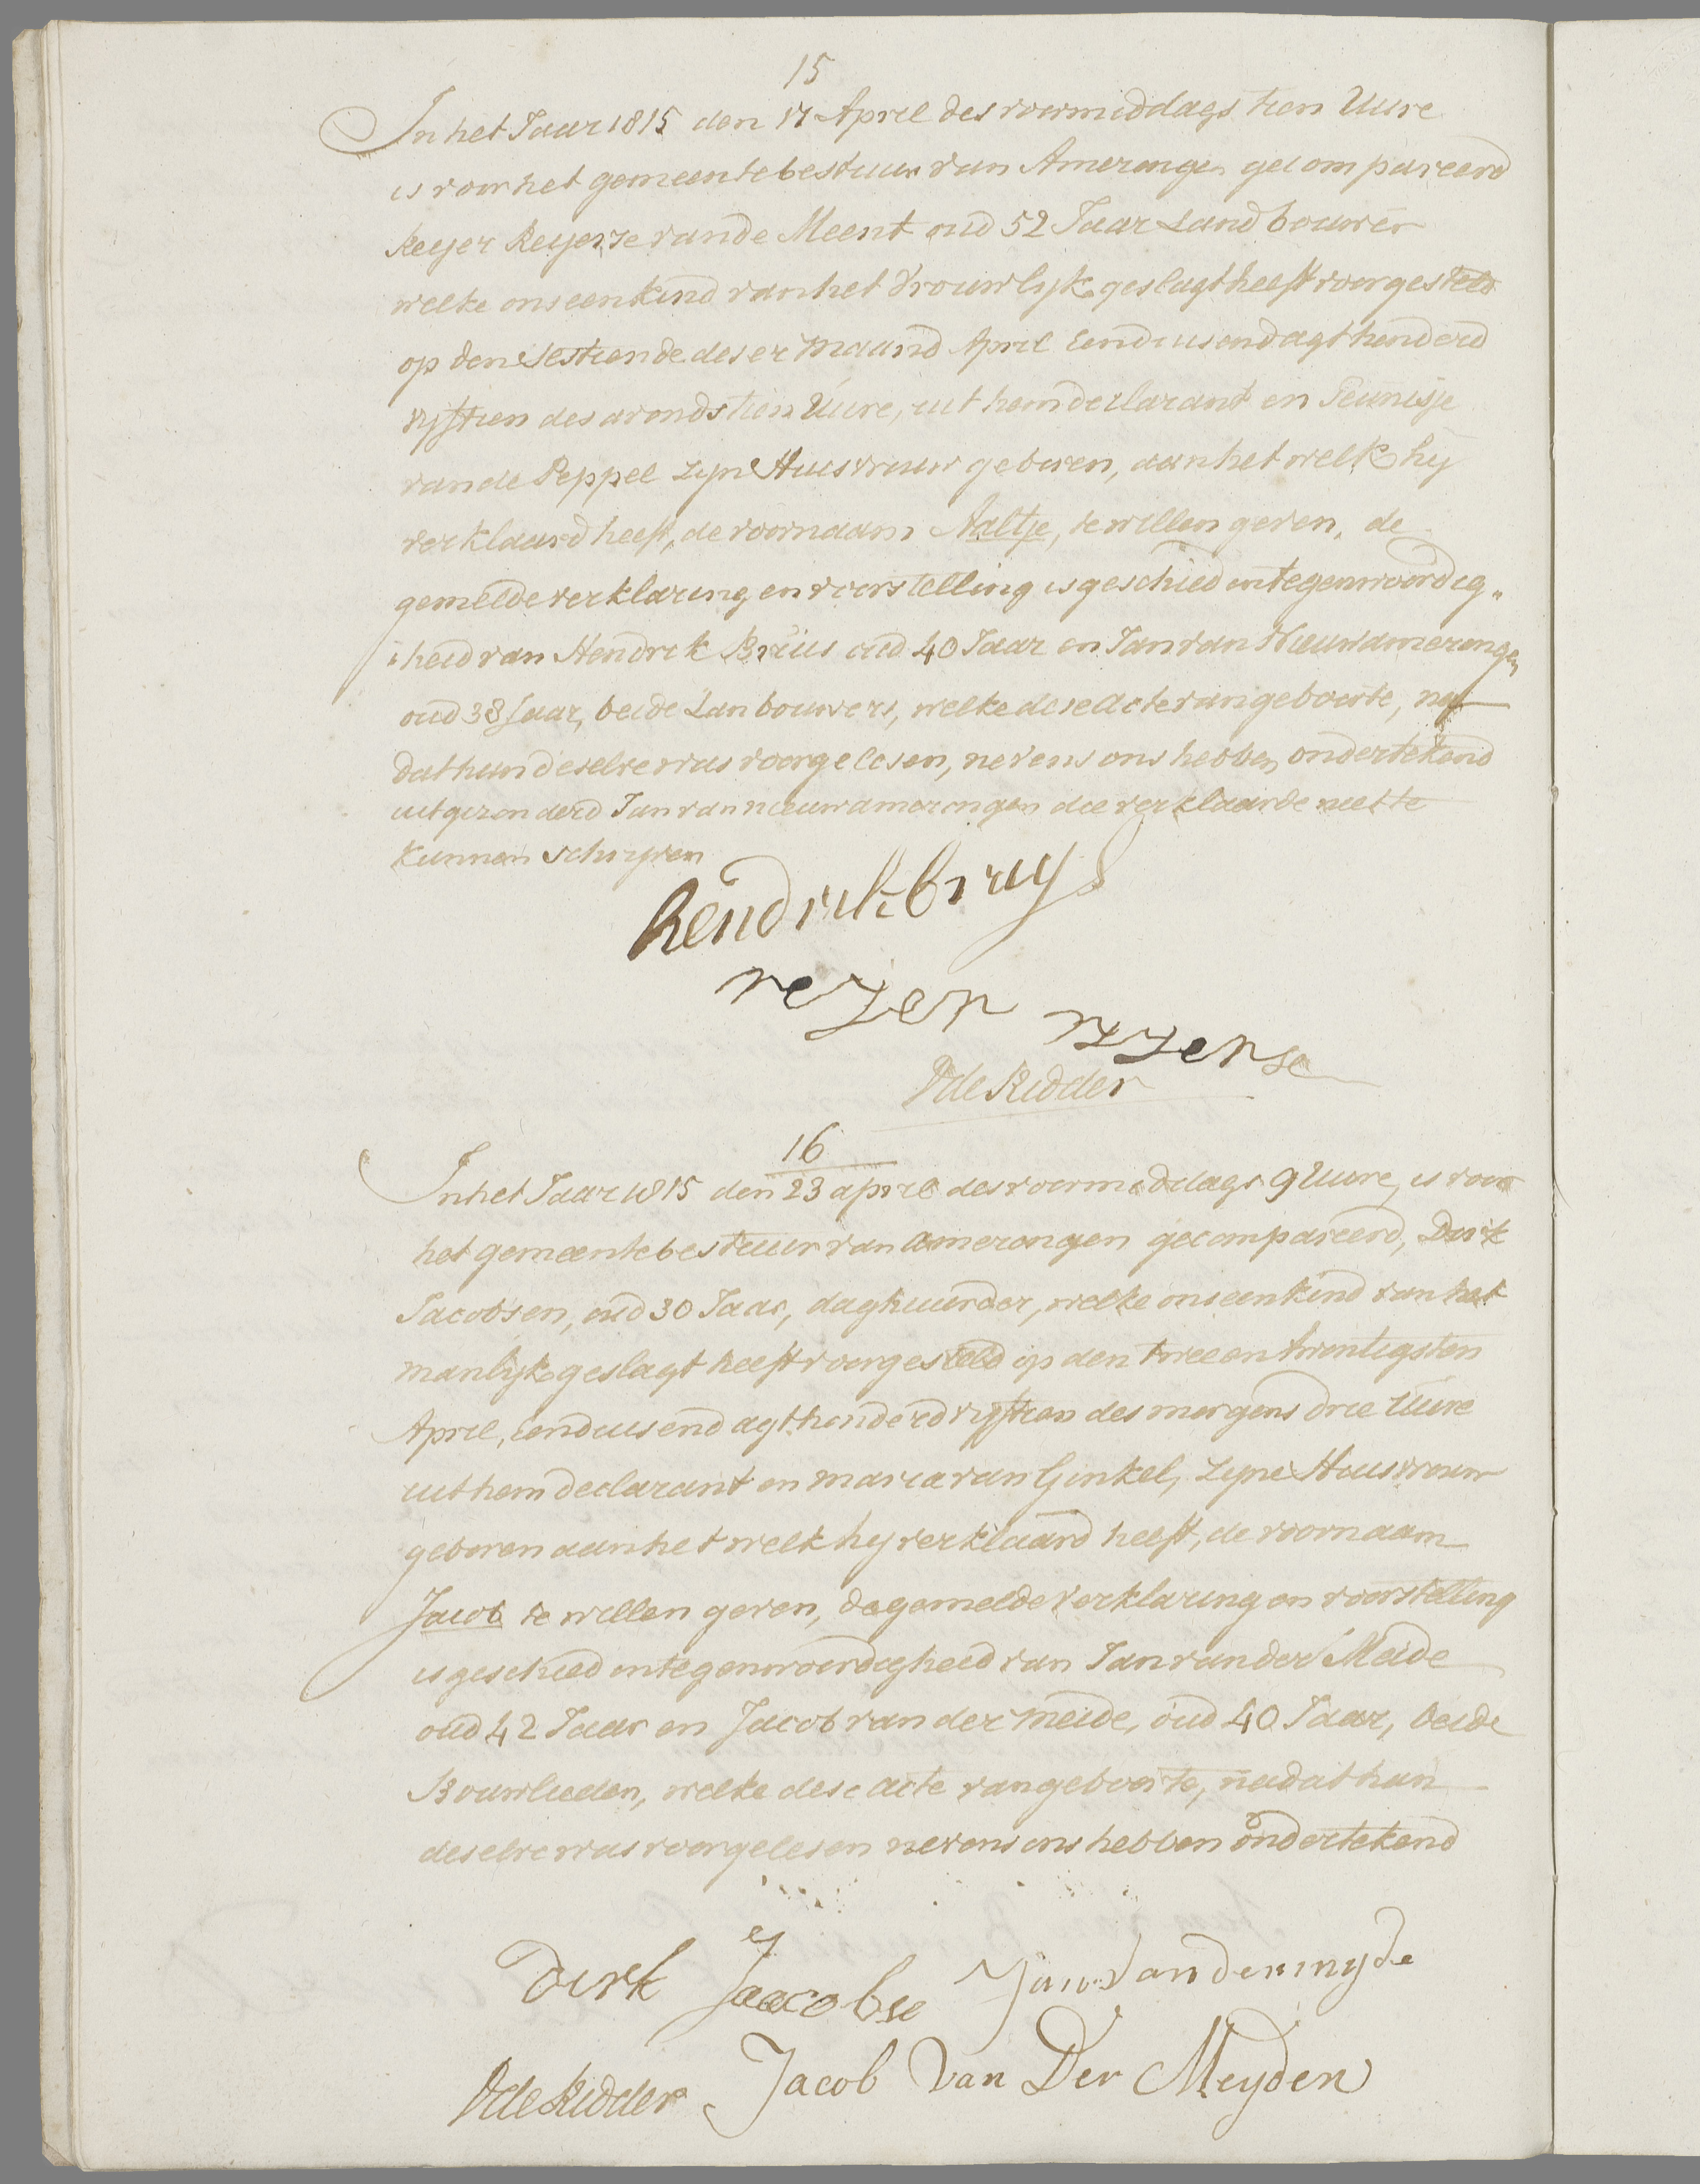 15
In het Jaar 1815 den 17 April des voormiddags tien Uure
is voor het gemeentebestuur van Amerongen gecompareerd
Reyer Reyerse van de Meent oud 52 Jaar Landbouwer
welke ons een kind van het Vrouwlyk geslagt heeft voorgesteld
op den sestiende deser maand April Eenduisend agthonderd
vyftien des avonds tien Uure, uit hem declarant en Teunisje
van de Peppel zyne Huisvrouw geboren, aan het welk hij
verklaard heeft, de voornaam Aaltje, te willen geven, de
gemelde verklaring en voorstelling is geschied in tegenwoordig„
heid van Hendrik Bruis oud 40 Jaar en Jan van Nieuwamerongen
oud 38 Jaar, beide Lanbouwers, welke dese Acte van geboorte, na
dat hun deselve was voorgelesen, nevens ons hebben ondertekend
uitgezonderd Jan van nieuwamerongen die verklaarde niet te
kunnen schryven
hendrik bruys
reyer ryerse
de Ridder
16
In het Jaar 1815 den 23 april des voormiddags 9 Uure, is voor
het gemeentebestuur van Amerongen gecompareerd, Dirk
Jacobsen, oud 30 Jaar, daghuurder, welke ons een kind van het
manlyk geslagt heeft voorgesteld op den twee en twintigsten
April, Eenduisend agthonderd vyftien des morgens drie Uure
uit hem declarant en maria van Ginkel, zyne Huisvrouw
geboren aan het welk hy verklaard heeft, de voornaam
Jacob te willen geven, de gemelde verklaring en voorstelling
is geschied in tegenwoordigheid van Jan van der Meide
oud 42 Jaar en Jacob van der meide, oud 40 Jaar, beide
Bouwlieden, welke dese acte van geboorte, nadat hun
deselve was voorgelesen nevens ons hebben ondertekend
Dirk Jaacobse Jan van der myde
de Ridder Jacob Van Der Meyden